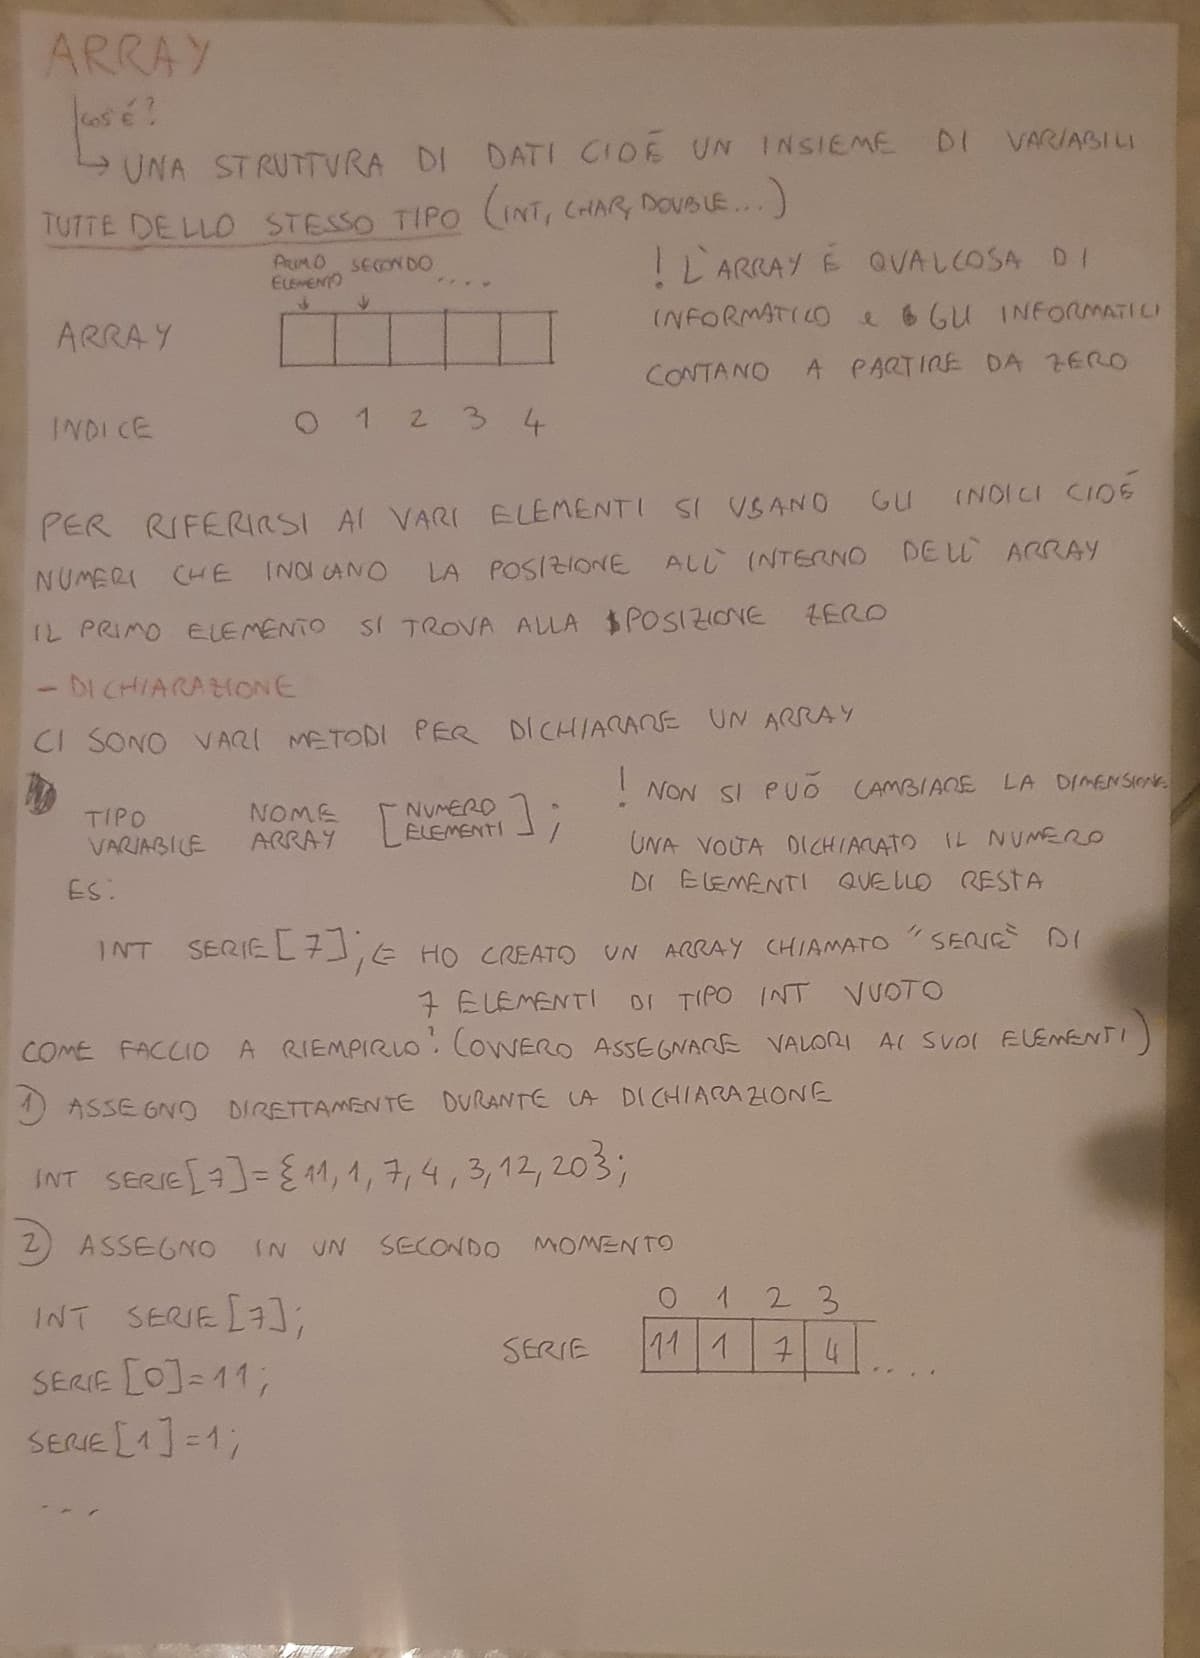 ARRAY
COS'É?
UNA STRUTTURA DI DATI CIOÉ UN INSIEME DI VARIABILI
TUTTE DELLO STESSO TIPO (INT, CHAR, DOUBLE...)
PRIMO ELEMENTO SECONDO ....
! L'ARRAY É QUALCOSA DI
INFORMATICO e GLI INFORMATICI
CONTANO A PARTIRE DA ZERO
ARRAY
INDICE 0 1 2 3 4
PER RIFERIRSI AI VARI ELEMENTI SI USANO GLI INDICI CIOÉ
NUMERI CHE INDICANO LA POSIZIONE ALL'INTERNO DELL'ARRAY
IL PRIMO ELEMENTO SI TROVA ALLA POSIZIONE ZERO
- DICHIARAZIONE
CI SONO VARI METODI PER DICHIARARE UN ARRAY
TIPO VARIABILE NOME ARRAY [NUMERO ELEMENTI];
! NON SI PUÓ CAMBIARE LA DIMENSIONE
UNA VOLTA DICHIARATO IL NUMERO
DI ELEMENTI QUELLO RESTA
ES:
INT SERIE[7]; ⇐ HO CREATO UN ARRAY CHIAMATO "SERIE" DI
7 ELEMENTI DI TIPO INT VUOTO
COME FACCIO A RIEMPIRLO? (OVVERO ASSEGNARE VALORI AI SUOI ELEMENTI)
1) ASSEGNO DIRETTAMENTE DURANTE LA DICHIARAZIONE
INT SERIE[7]={11,1,7,4,3,12,20};
2) ASSEGNO IN UN SECONDO MOMENTO
INT SERIE[7];
SERIE[0]=11;
SERIE[1]=1;
...
0 1 2 3
SERIE 11 1 7 4 ....